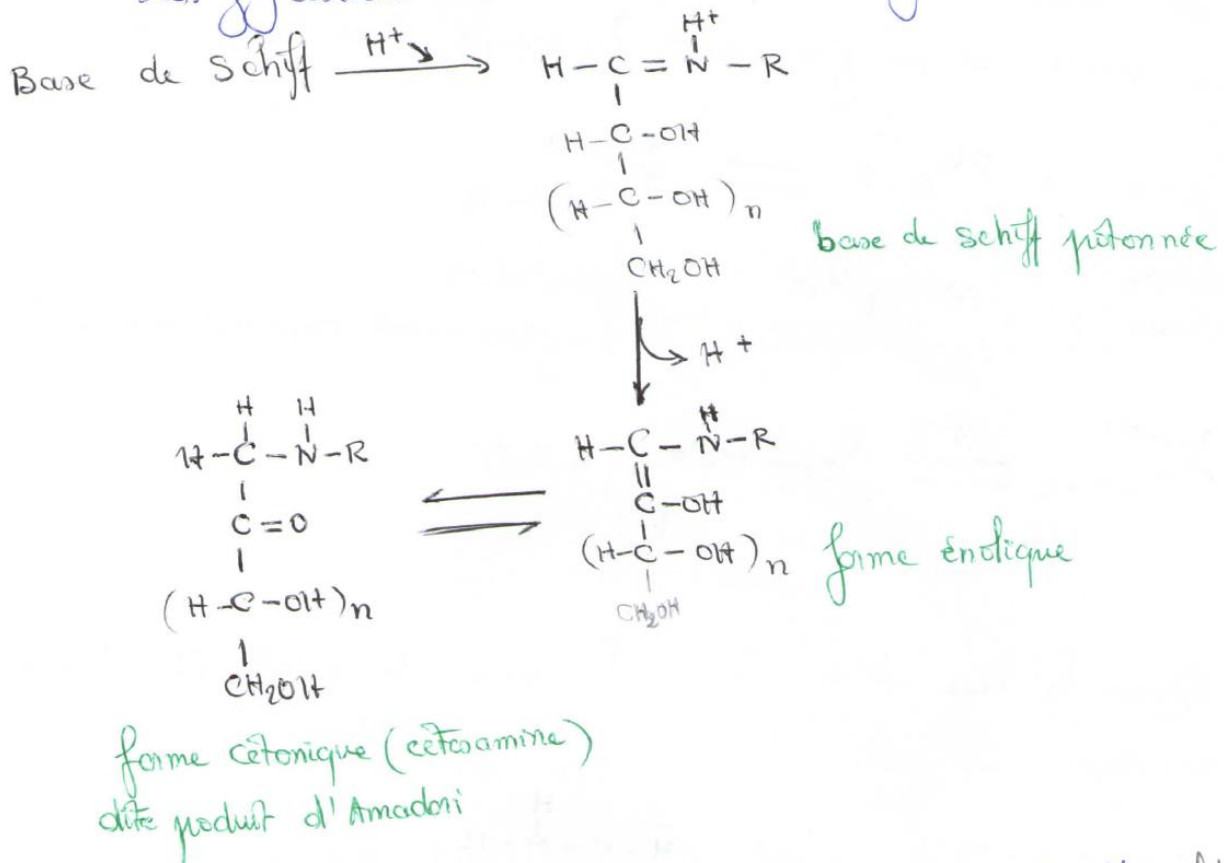 Base de Schiff H+ H – C = N – R
H+
H – C – OH
(H – C – OH)n
CH2OH
base de schiff protonnée
H+
H H
H – C – N – R
C = O
(H – C – OH)n
CH2OH
H
H – C – N – R
C – OH
(H – C – OH)n forme énolique
CH2OH
forme cétonique (cétosamine)
dite produit d'Amadori